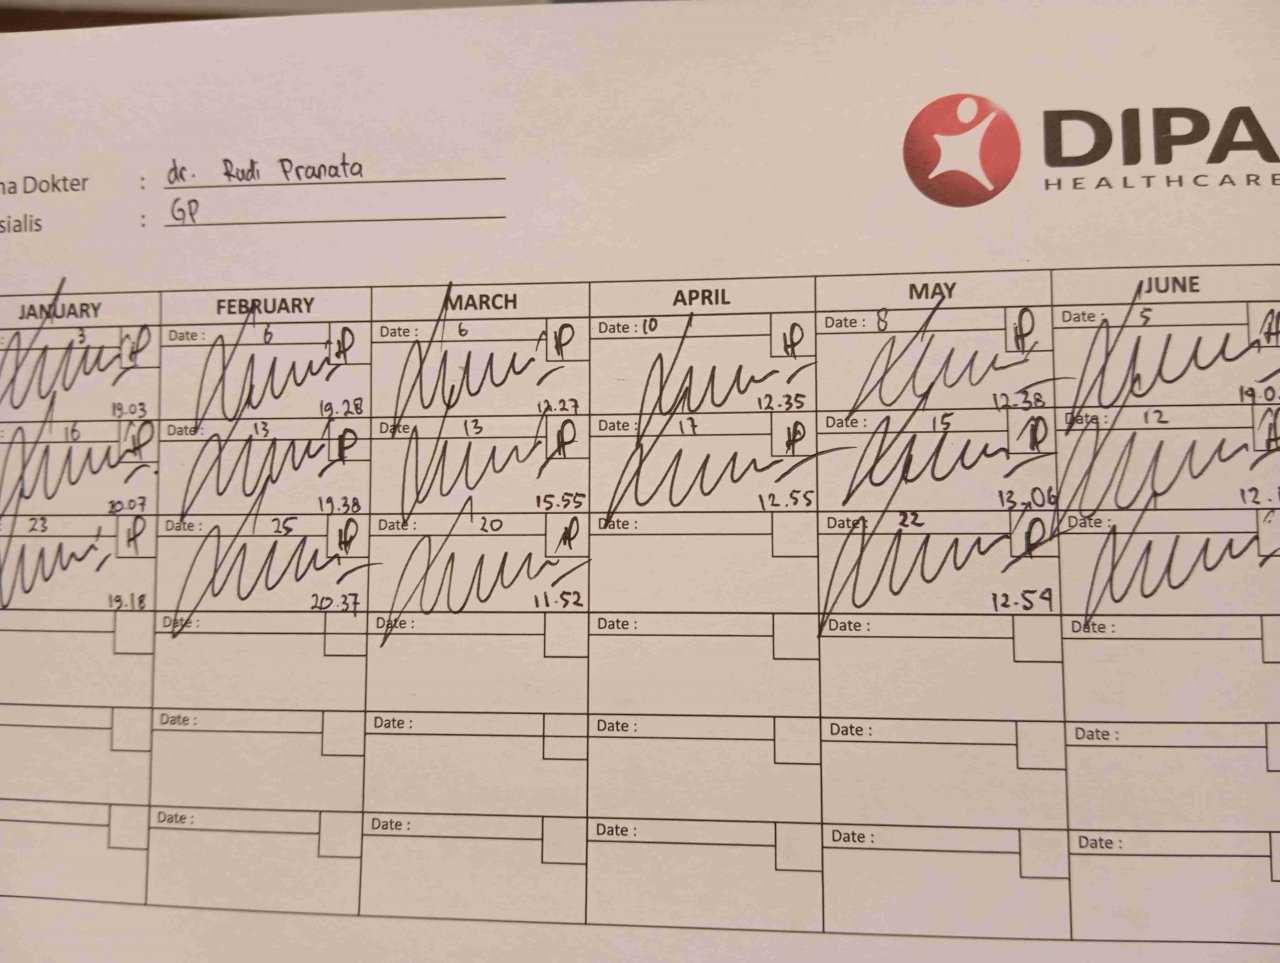 DIPA
HEALTHCARE
na Dokter : dr. Rudi Pranata
sialis : GP
JANUARY FEBRUARY MARCH APRIL MAY JUNE
: 3 Date : 6 Date : 6 Date : 10 Date : 8 Date : 5
19.03 19.28 12.27 12.35 12.38 19.0
: 16 Date : 13 Date : 13 Date : 17 Date : 15 Date : 12
20.07 19.38 15.55 12.55 13.06 12.
23 Date : 25 Date : 20 Date : Date : 22 Date :
19.18 20.37 11.52 12.59
Date : Date : Date : Date : Date :
Date : Date : Date : Date : Date :
Date : Date : Date : Date : Date :